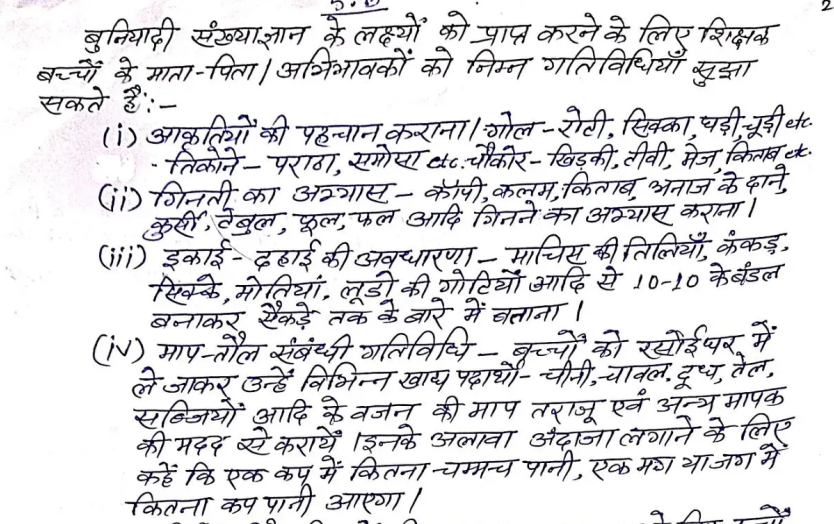 2
बुनियादी संख्याज्ञान के लक्ष्यों को प्राप्त करने के लिए शिक्षक
बच्चों के माता-पिता/अभिभावकों को निम्न गतिविधियाँ सुझा
सकते हैं:-
(i) आकृतियों की पहचान कराना। गोल - रोटी, सिक्का, घड़ी, चूड़ी etc.
तिकोने - पराठा, समोसा etc. चौकोर - खिड़की, टीवी, मेज, किताब etc.
(ii) गिनती का अभ्यास - कॉपी, कलम, किताब, अनाज के दाने,
कुर्सी, टेबुल, फूल, फल आदि गिनने का अभ्यास कराना।
(iii) इकाई - दहाई की अवधारणा - माचिस की तिलियाँ, कंकड़,
सिक्के, मोतियां, लूडो की गोटियों आदि से 10-10 के बंडल
बनाकर सैकड़े तक के बारे में बताना।
(iv) माप-तौल संबंधी गतिविधि - बच्चों को रसोईघर में
ले जाकर उन्हें विभिन्न खाद्य पदार्थों - चीनी, चावल, दूध, तेल,
सब्जियों आदि के वजन की माप तराजू एवं अन्य मापक
की मदद से करायें। इनके अलावा अंदाजा लगाने के लिए
कहें कि एक कप में कितना चम्मच पानी, एक मग या जग में
कितना कप पानी आएगा।